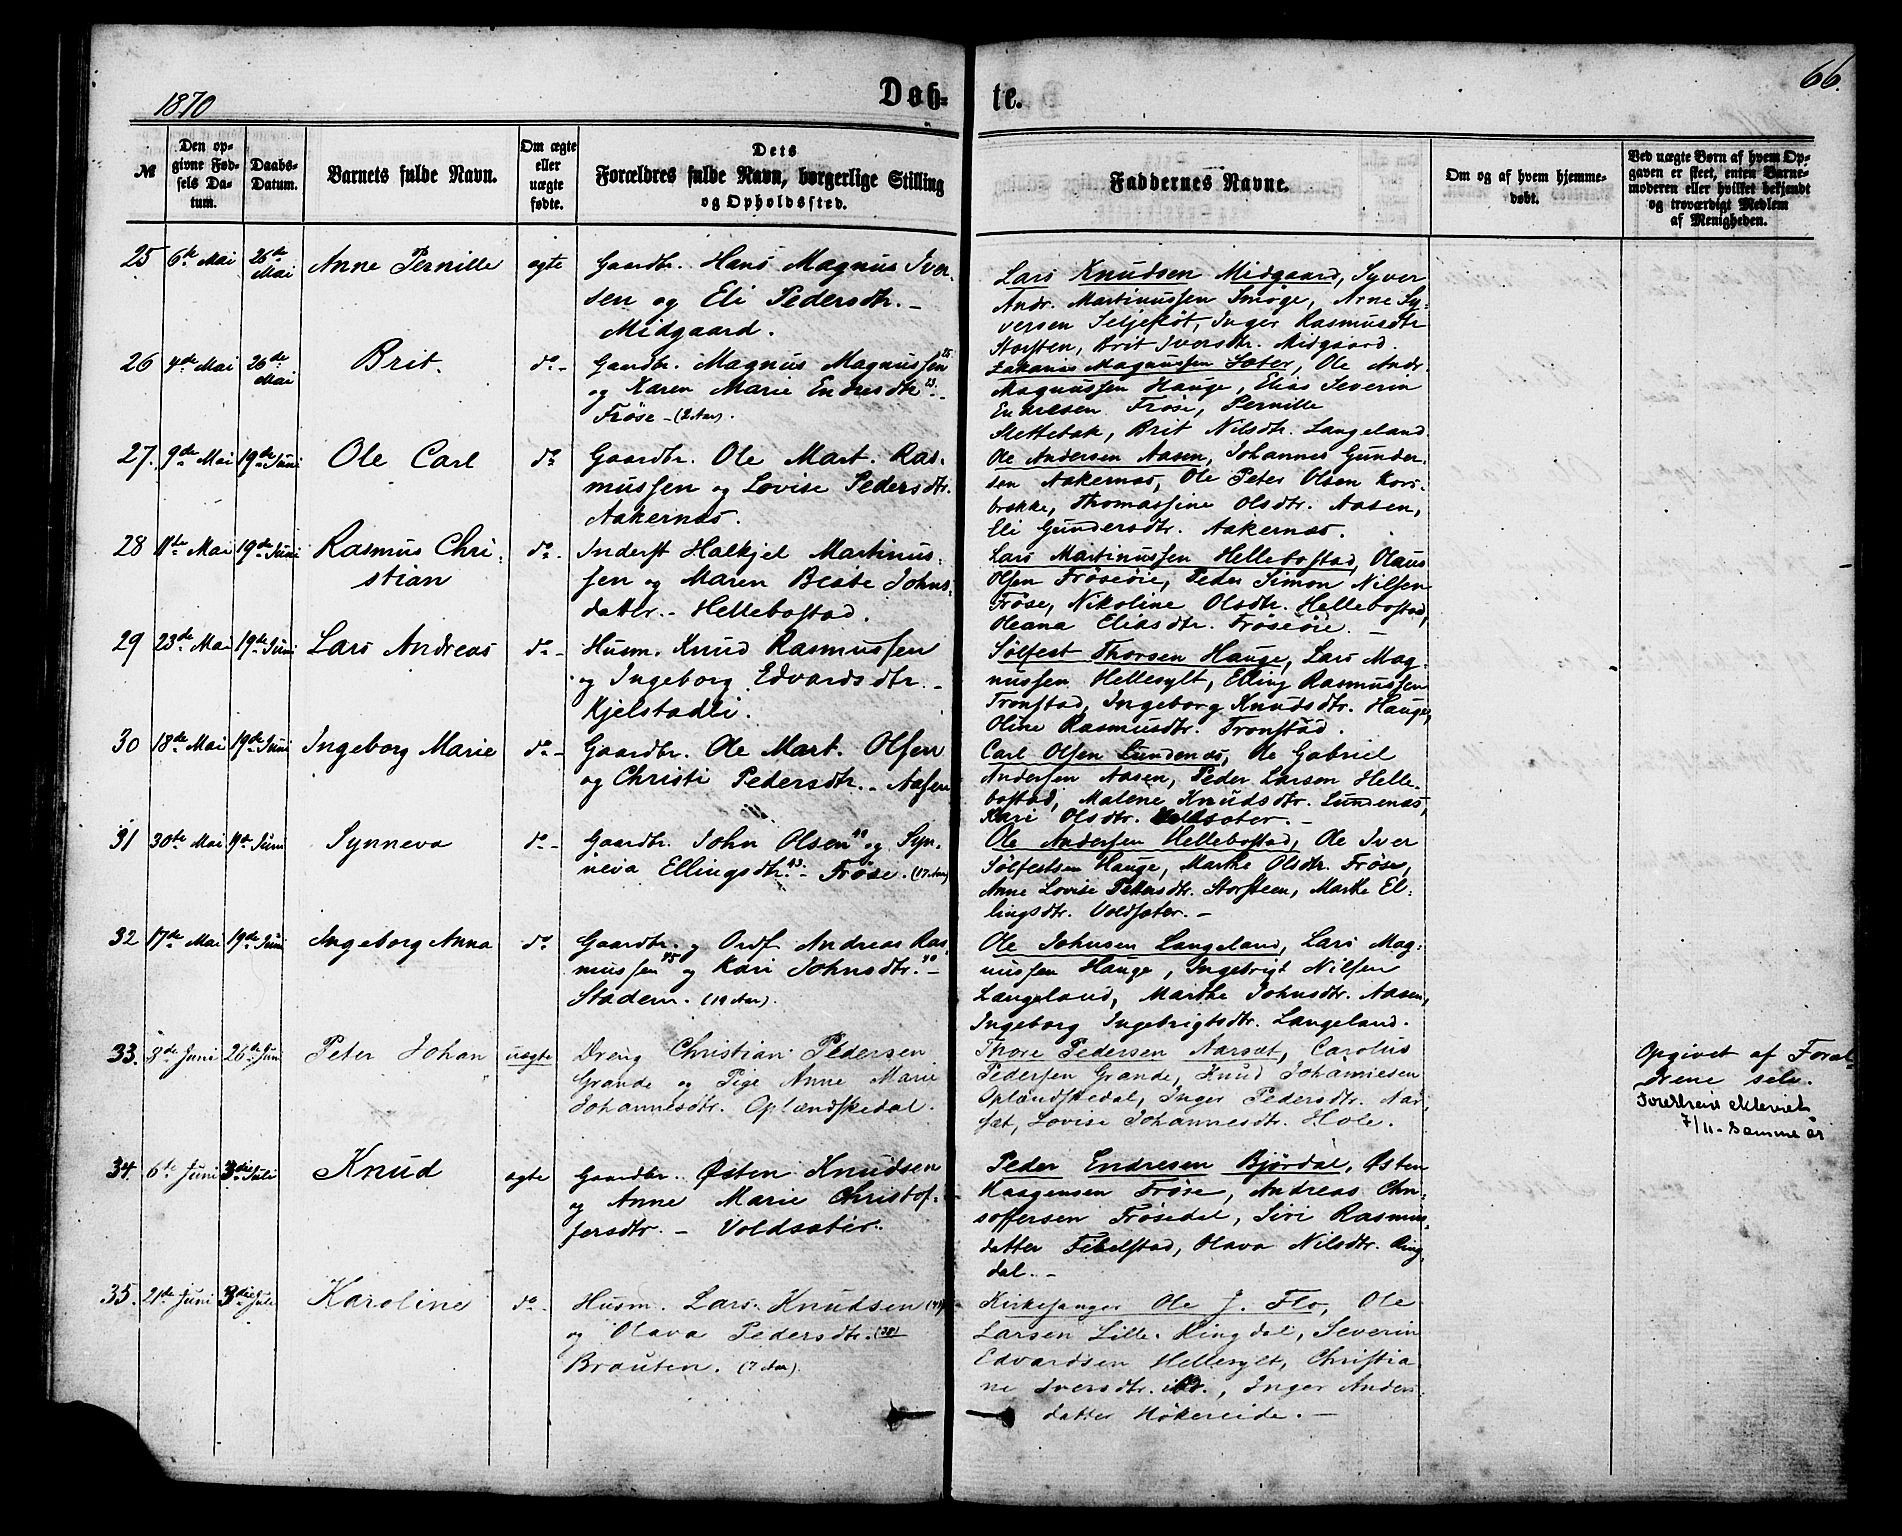 1870
Døb-
te.
66.
№
Den op-
givne Fød-
sels Da-
tum.
Daabs-
Datum.
Barnets fulde Navn.
Om ægte
eller
uægte
fødte.
Dets
Forældres fulde Navn, borgerlige Stilling
og Opholdssted.
Faddernes Navne.
Om og af hvem hjemme-
døbt.
Ved uægte Børn af hvem Op-
gaven er skeet, enten Barne-
moderen eller hvilket bekjendt
og troværdigt Medlem
af Menigheden.
25 6te Mai 26de Mai Anne Pernille ægte
Gaardbr. Hans Magnus Iver-
sen og Eli Pedersdtr. -
Midgaard.
Lars Knudsen Midgaard, Syver
Andr. Martinussen Smoge, Arne Sy-
versen Seljeflöt, Inger Rasmusdtr
Storsten, Brit Iversdtr. Midgaard.
26 4de Mai 26de Mai Brit. do -
Gaardbr. Magnus Magnussen 25
og Karen Marie Endresdtr 23. -
Fröse - (2 Aar).
Zakarias Magnussen Sæter, Ole Andr.
Magnussen Hauge, Elias Severin
Endresen Fröse, Pernille
Slettebak, Brit Nilsdtr. Langeland
27. 9de Mai 19de Juni Ole Carl do
Gaardbr. Ole Mart. Ras-
mussen og Lovise Pedersdtr.
Aakernæs.
Ole Andersen Aasen, Johannes Gunder-
sen Aakernæs, Ole Peter Olsen Kors-
brække, Thomassine Olsdtr. Aasen,
Eli Gundersdtr. Aakernæs.
28 11te Mai 19de Juni Rasmus Chri-
stian do -
Inderst Halkjel Martinus-
sen og Maren Beate Johns-
dattr. - Hellebostad.
Lars Martinussen Hellebostad, Olaus
Olsen Fröseöie, Peder Simon Nilsen
Fröse, Nikoline Olsdtr. Hellebostad,
Oleana Eliasdtr. Fröseöie. -
29 23de Mai 19de Juni Lars Andreas do -
Husm. Knud Rasmussen
og Ingeborg Edvardsdtr. -
Kjelstadli.
Sölfest Thorsen Hauge, Lars Mag-
nussen Hellesylt, Elling Rasmussen
Tronstad, Ingeborg Knudsdtr. Hauge,
Oline Rasmusdtr. Tronstad.
30 18de Mai 19de Juni Ingeborg Marie do -
Gaardbr. Ole Mart. Olsen
og Christi Pedersdtr. - Aasen
Carl Olsen Lundenæs, Ole Gabriel
Andersen Aasen, Peder Larsen Helle-
bostad, Malene Knudsdtr. Lundenæs,
Kari Olsdtr. Voldsæter. -
31 30te Mai 19de Juni Synneva do -
Gaardbr. John Olsen 40 og Syn-
neva Ellingsdtr. 43. - Fröse. (17 Aar)
Ole Andersen Hellebostad, Ole Iver
Sölfestsen Hauge, Marthe Olsdtr. Fröse,
Anne Lovise Petersdtr. Storsteen, Marthe El-
lingsdtr. Voldsæter. -
32 17de Mai 19de Juni Ingeborg Anna do
Gaardbr. og Ordf. Andreas Ras-
mussen 45 og Kari Johnsdtr. 40 -
Stadem. (19 Aar).
Ole Johnsen Langeland, Lars Mag-
nussen Hauge, Ingebrigt Nilsen
Langeland, Marthe Johnsdtr. Aasen,
Ingeborg Ingebrigtsdtr. Langeland.
33. 3de Juni 26de Juni Peter Johan uægte
Dreng Christian Pedersen
Grande og Pige Anne Marie
Johannesdtr. Oplændskedal.
Thore Pedersen Aarsæt, Carolus
Pedersen Grande, Knud Johannesen
Oplændskedal, Inger Pedersdtr. Aar-
sæt, Lovise Johannesdtr. Hole.
Opgivet af Foræl-
drene selv.
Forældrene ekteviet
7/11 - samme år
34. 6te Juni 3die Juli Knud ægte
Gaardbr. Østen Knudsen
og Anne Marie Christof-
fersdtr. - Voldsæter.
Peder Endresen Bjørdal, Østen
Haagensen Fröse, Andreas Chri-
stoffersen Frösedal, Siri Rasmus-
datter Tekelstad, Olava Nilsdtr. Ring-
dal. -
35. 21de Juni 3die Juli Karoline do -
Husm. Lars Knudsen
og Olava Pedersdtr. (38)
Brauten. (7 Aar).
Kirkesanger Ole J. Flo, Ole
Larsen Lille-Ringdal, Severin
Edvardsen Hellesylt, Christia-
ne Iversdtr. ibd., Inger Anders-
datter Hökereide. -